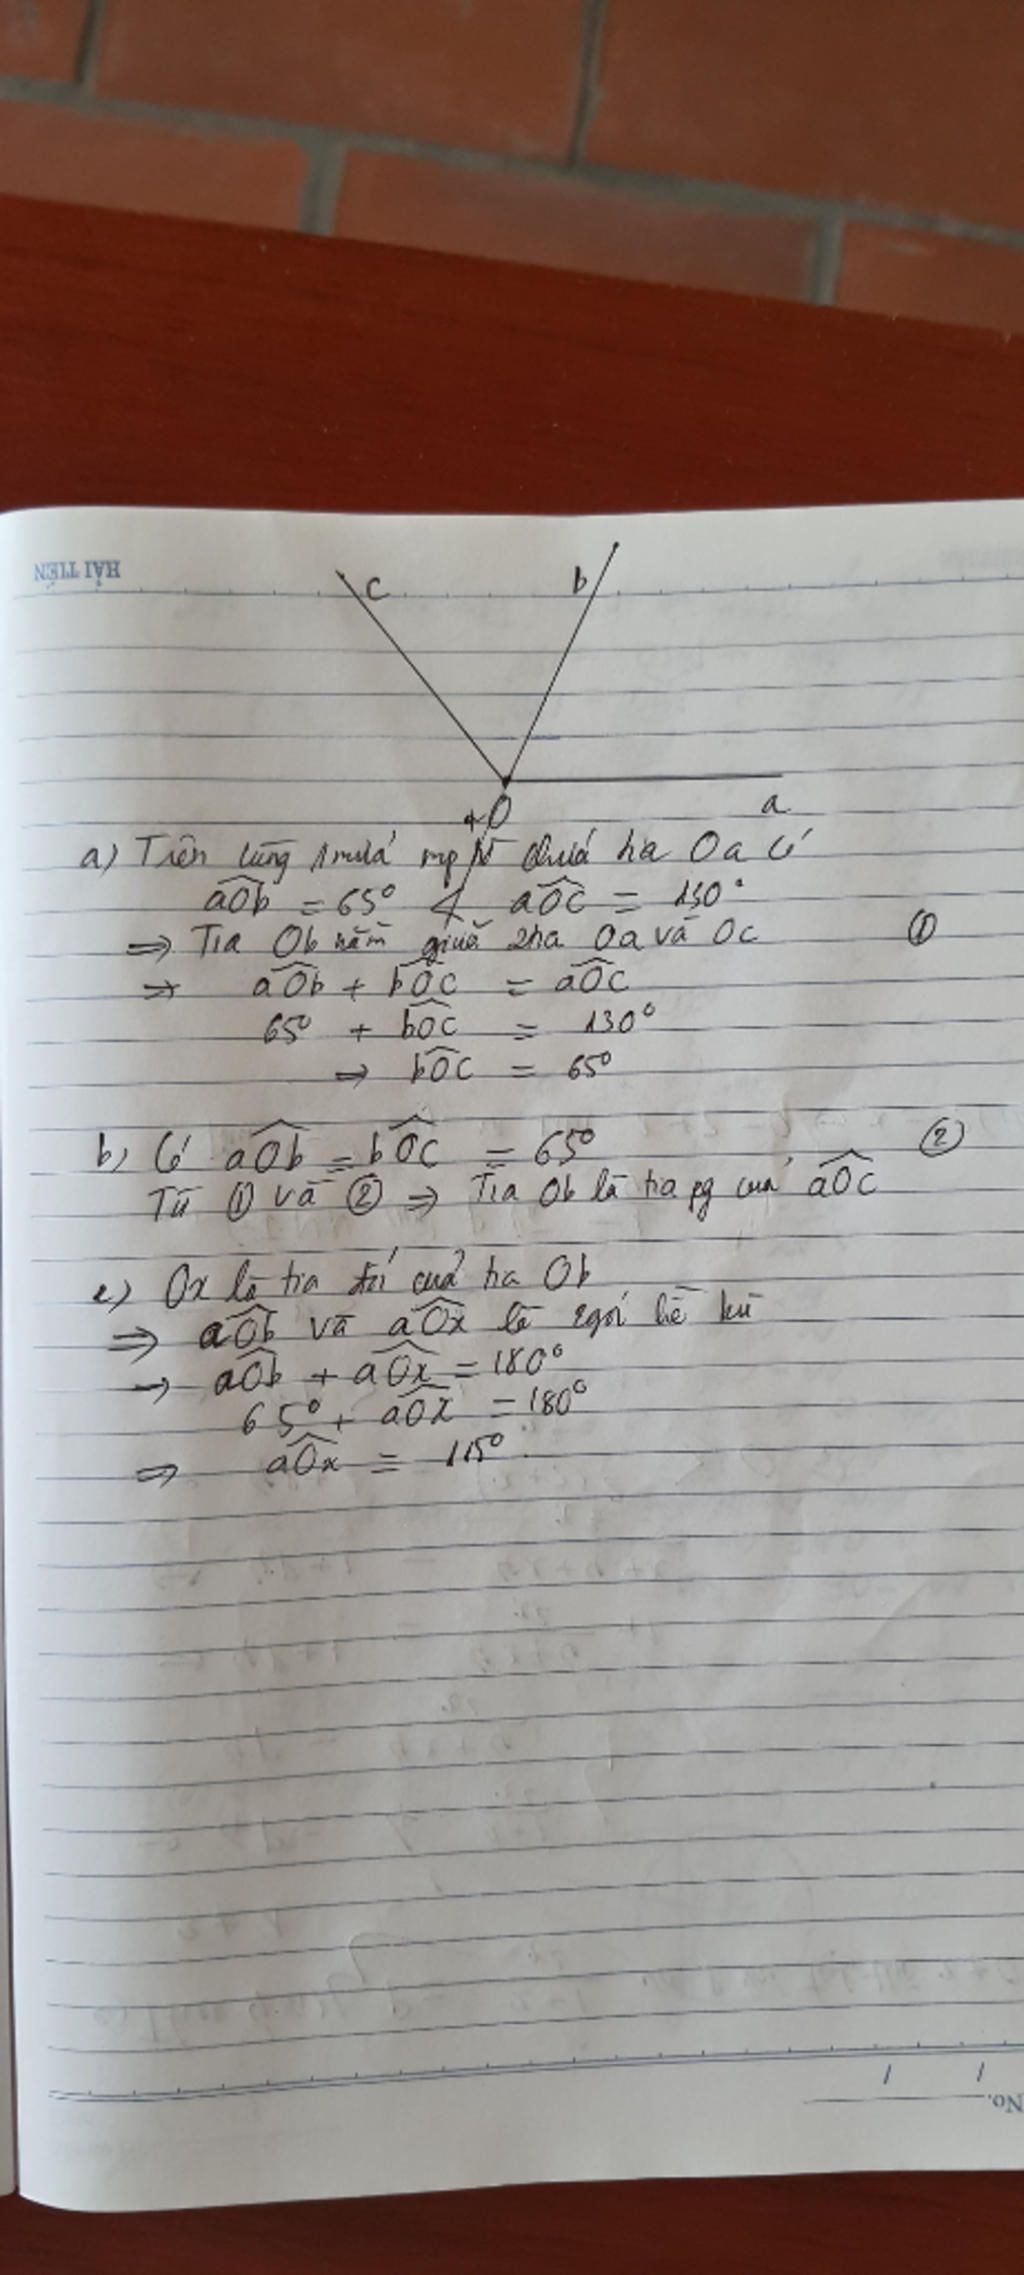 HẢI TIẾN
c b
O a
a) Trên cùng 1 nửa mp bờ chứa tia Oa có
aOb = 65° < aOc = 130°
=> Tia Ob nằm giữa 2 tia Oa và Oc ①
=> aOb + bOc = aOc
65° + bOc = 130°
=> bOc = 65°
b) Có aOb = bOc = 65° ②
Từ ① và ② => Tia Ob là tia pg của aOc
c) Ox là tia đối của tia Ob
=> aOb và aOx là 2 góc kề bù
=> aOb + aOx = 180°
65° + aOx = 180°
=> aOx = 115°
No.